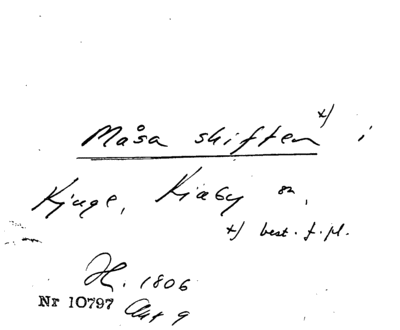 Måsa skiften x) i
Kjuge, Kiaby sn,
x) best. f. pl.
H. 1806
Nr 10797 Akt 9